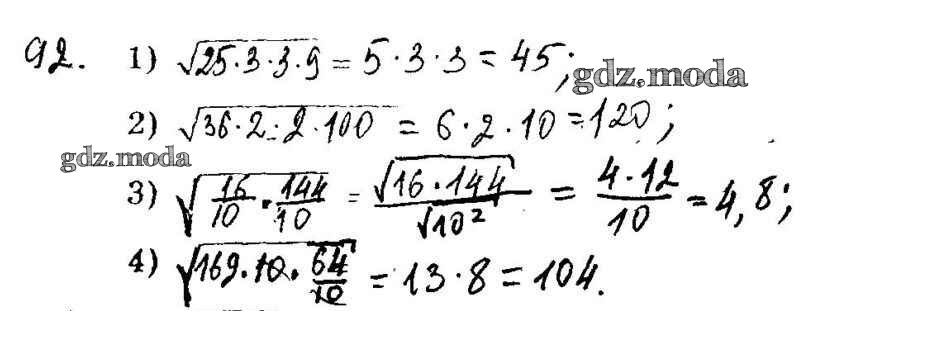 92. 1) √25·3·3·9 = 5·3·3 = 45;
gdz.moda
2) √36·2·2·100 = 6·2·10 = 120;
gdz.moda
3) √16/10 · 144/10 = √16·144/√10² = 4·12/10 = 4,8;
4) √169·10·64/10 = 13·8 = 104.